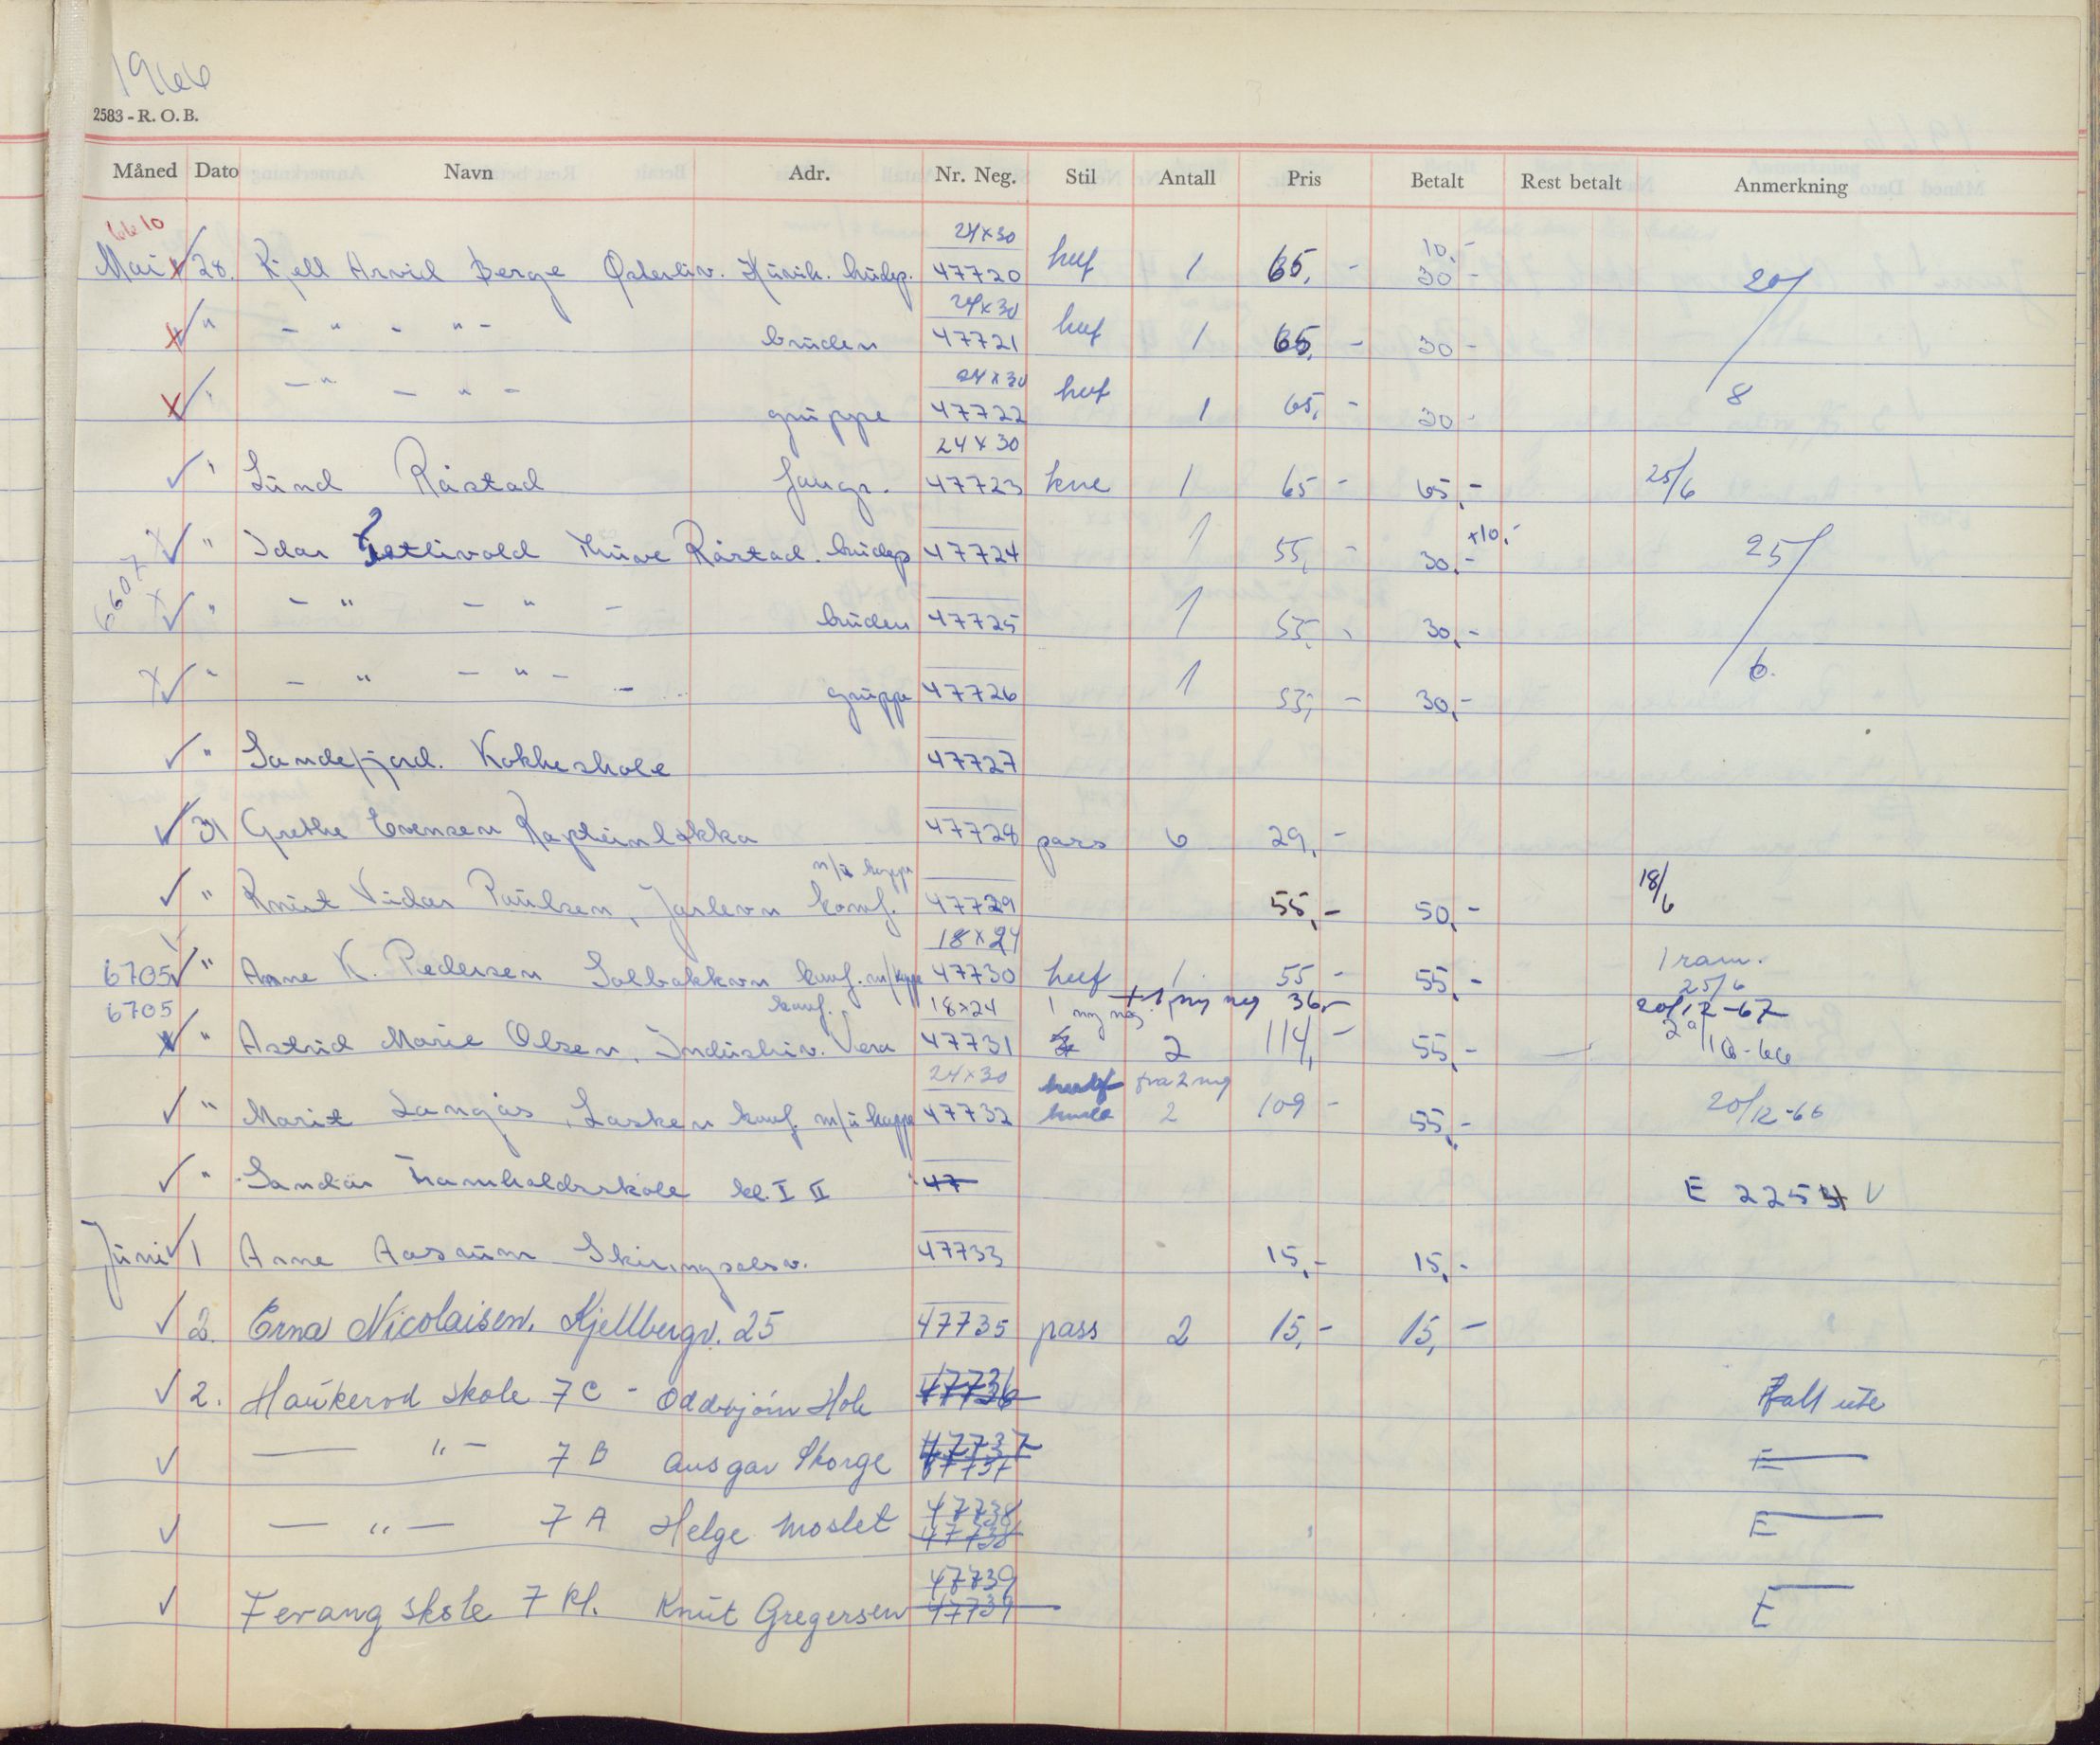 1966
2583 - R. O. B.
Måned Dato Navn Adr. Nr. Neg. Stil Antall Pris Betalt Rest betalt Anmerkning
6610 24x30 10,-
Mai 28. Kjell Arvid Berge Østerliv. brudep. 47720 huf 1 65,- 30- 20/
24x30
" - " - " - bruden 47721 huf 1 65,- 30-
24x30
" - " - " - gruppe 47722 huf 1 65,- 30- 8
24x30
" Lund Råstad 47723 kne 1 65- 65,- 25/6
+10,-
" Idar Råstad. brudep 47724 1 55,- 30,- 25/
6607
" - " - " - bruden 47725 1 55,- 30,-
" - " - " - gruppe 47726 1 55,- 30,- 6.
" Sandefjord. Kokkeskole 47727
31 Grethe Evensen Kapteinløkka 47728 pass 6 29,-
m/u kappe
" Knut Vidar Paulsen, Jarlevn konf. 47729 55,- 50,- 18/6
18x24 1 ram.
6705 " Anne K. Pedersen Solbakkvn konf. m/kappe 47730 huf 1 55- 55,- 25/6
6705 konf. 18x24 1 ny neg +1 ny neg 36,- 20/12-67
" Astrid Marie Olsen, Industriv. Vera 47731 2 114,- 55,-
24x30 fra 2 neg
" Marit Langås, Lasken konf. m/u kappe 47732 2 109- 55,- 20/12-66
" Sandar Framhaldsskole kl. I II 47 E 2254 V
Juni 1 Anne Aasrum Skiringsalsv. 47733 15,- 15,-
2. Erna Nicolaisen, Kjellbergv. 25 47735 pass 2 15,- 15,-
2. Haukerød skole 7 C - Oddbjørn Hole 47736 Falt ute
— " — 7 B Ansgar Skorge 47737 E
47737
— " — 7 A Helge Moslet 47738 E
47738
Fevang skole 7 kl. Knut Gregersen 47739 E
47739